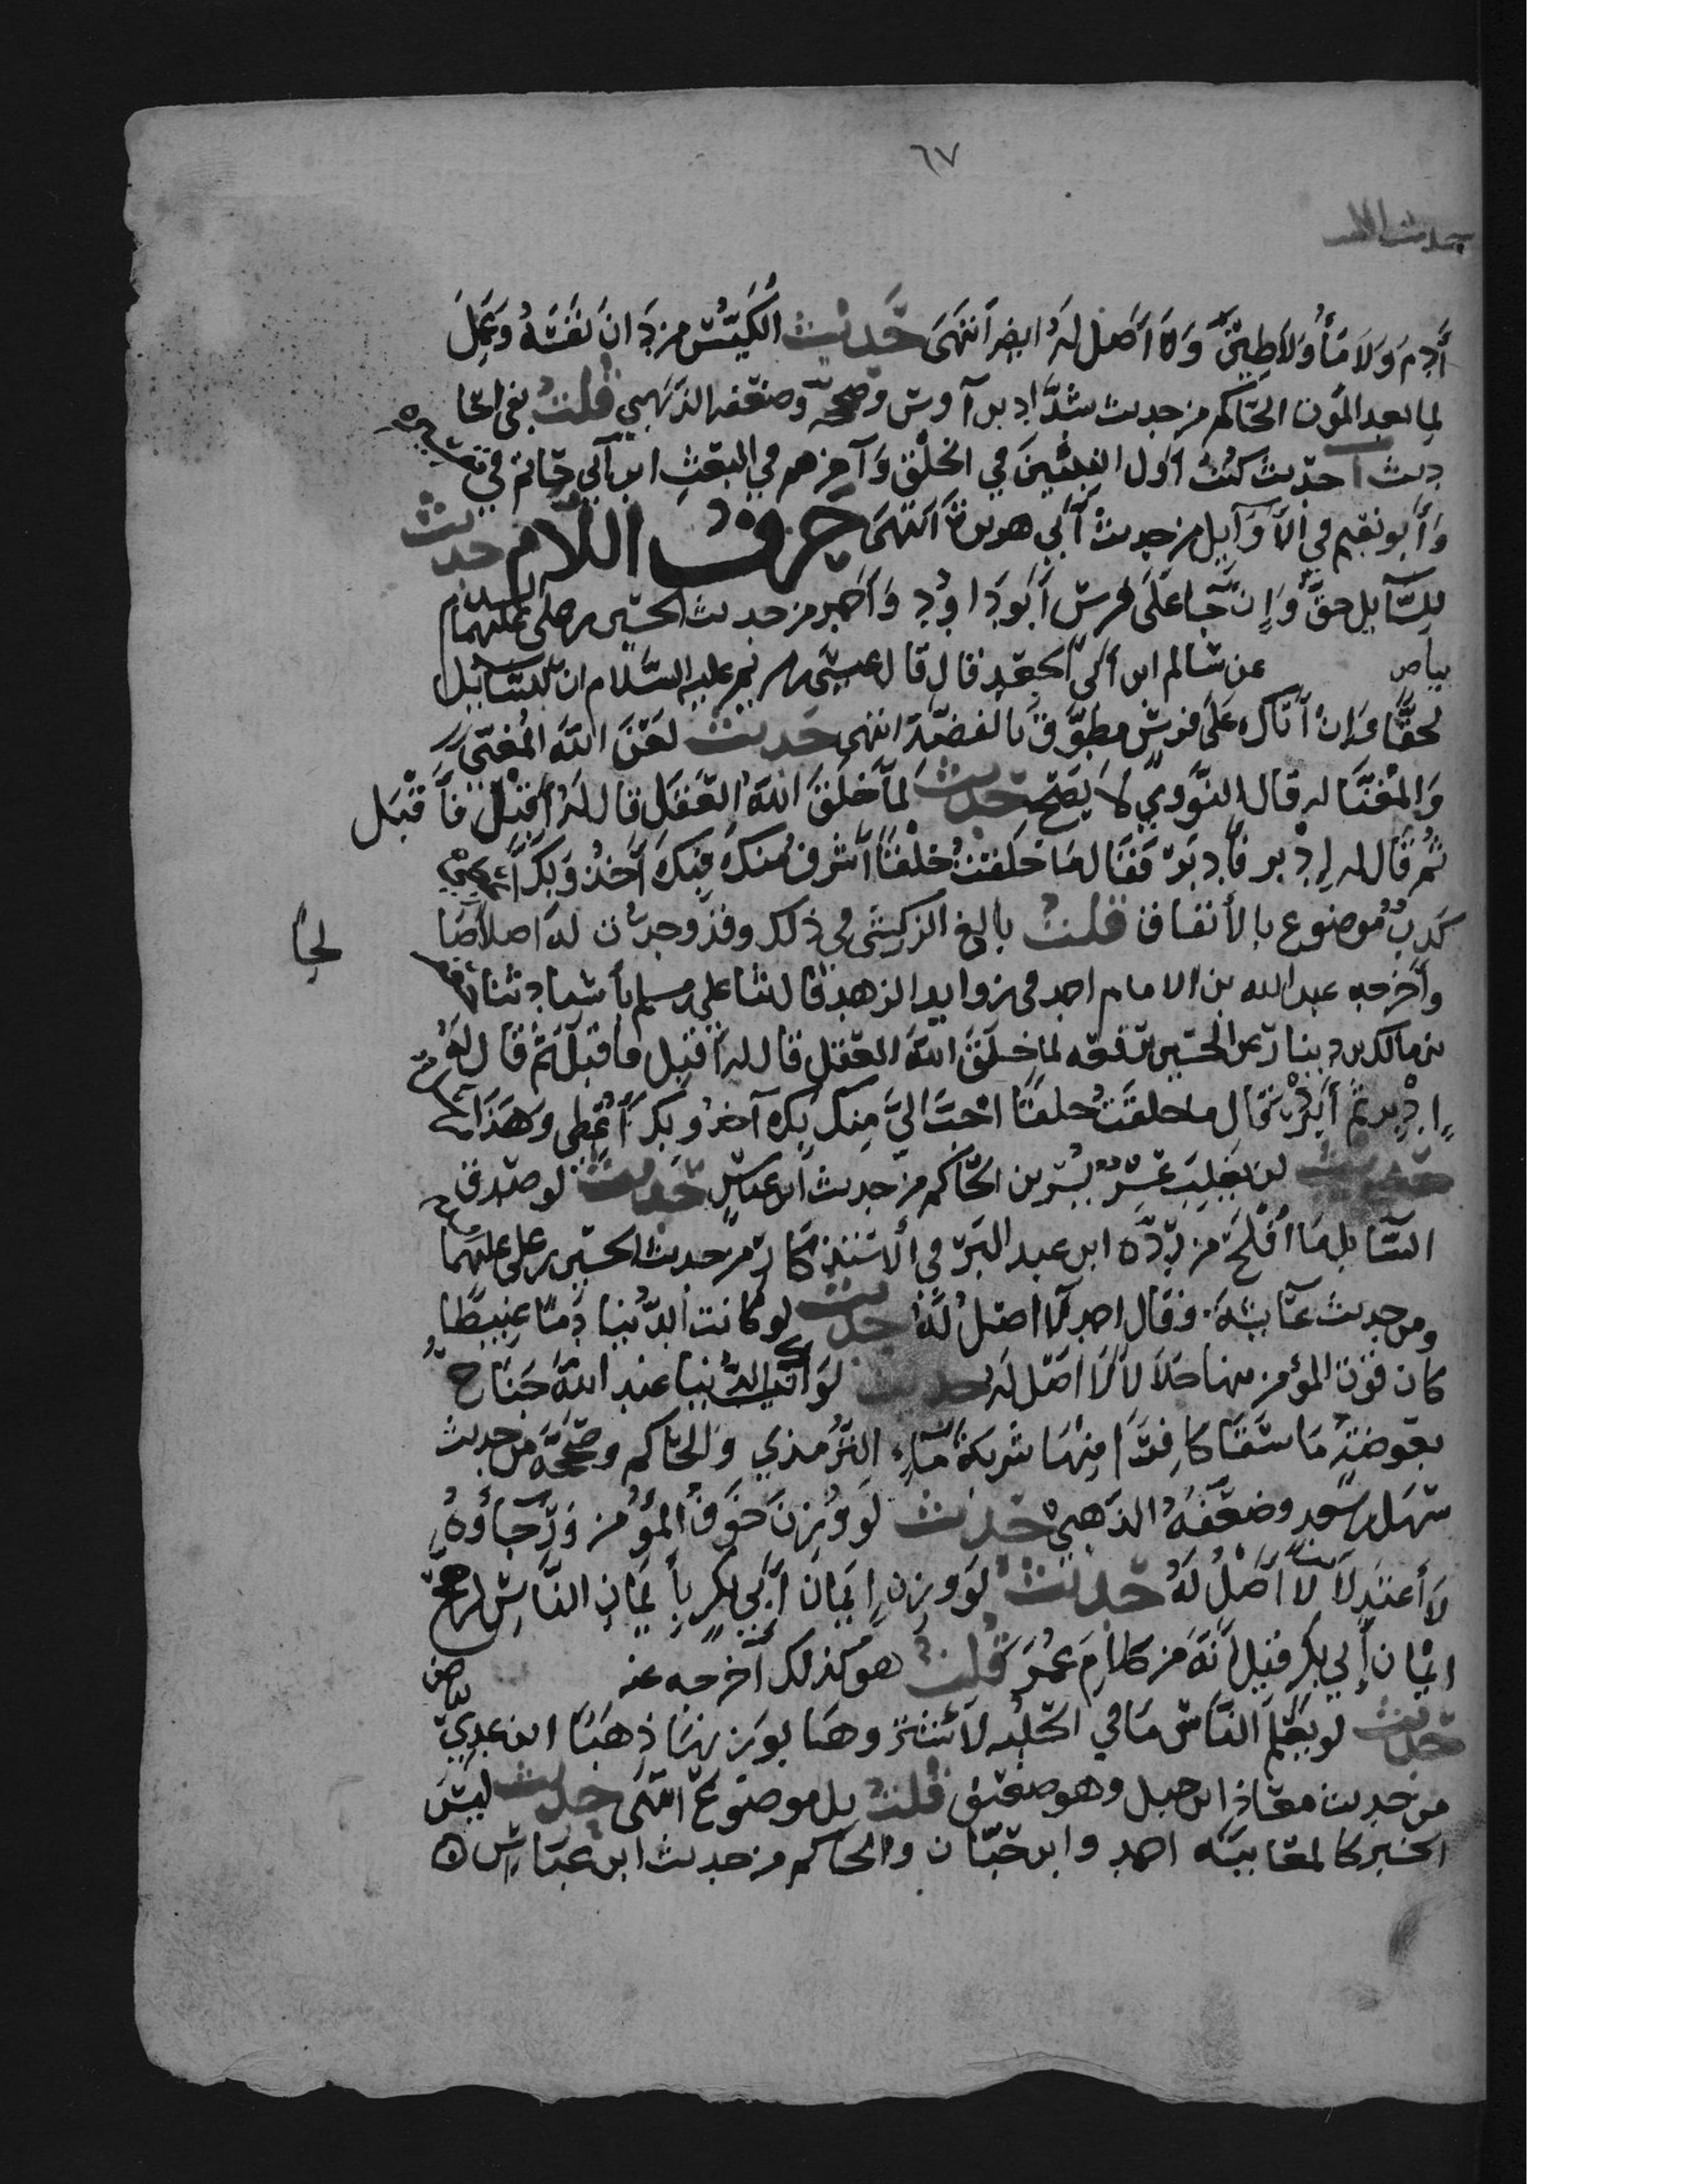 ٦٧
حديث
أدم ولا مَأ ولا طين ولا أصل له ايضا انتهى حديث الكَيّس من دان نفسه وعمل
لما بعد الموت الحاكم من حديث شدَّاد بن أوس وصححه وضعفه الذهبي قلت بقي احا
ديث حديث كنت أول النبيّين في الخلق وآخرهم في البعث ابن أبي حاتم في تفسيره
وأبو نعيم في الدلايل من حديث أبي هريرة انتهى حرف اللام حديث
للسَّايل حق وإن جا على فرس أبو داود وأحمد من حديث الحسين بن علي عليهما السلام
بياض عن سالم ابن أبي الجعد قال قال عيسى بن مريم عليه السَّلام ان للسايل
لحقًّا وان أتاك على فرس مطوَّق بالفضة انتهى حديث لعن الله المغني
والمغنَّا له قال النووي لا يصح حديث لما خلق الله العقل قال له أقبل فأقبل
ثم قال له ادبر فأدبر فقال ما خلقت خلقًا أشرف منك فبك آخذ وبك أعطي
كذب موضوع بالأتفاق قلت بالغ الزركشي في ذلك وقد وجدت له اصلا صا
لحًا
وأخرجه عبد الله بن الامام احمد في زوايد الزهد قال ثنا علي بن مسلم بأسناد ثنا
بن مالك بن دينار عن الحسين يرفعه لما خلق الله العقل قال له أقبل فأقبل ثم قال له
ادبر ثم أدبر فقال ما خلقت خلقًا احبَّ اليَّ منك بك آخذ وبك أعطي وهذا
حديث لن يغلب عسر يسرين الحاكم من حديث ابن عباس حديث لو صدق
السَّايل ما أفلح من ردَّه ابن عبد البر في الاستذكار من حديث الحسين بن علي عليهما
ومن حديث عايشة وقال احمد لا اصل له حديث لو كانت الدُّنيا دمًا عبيطًا
كان قوت المؤمن منها حلالا لا اصل له حديث لو أن الدنيا عند الله جناح
بعوضة ما سقا كافرًا منها شربة ماء الترمذي والحاكم وصححه من حديث
سهل بن سعد وضعفه الذهبي حديث لو وُزن خوف المؤمن ورجاؤه
لأعتدلا لا أصل له حديث لو وزن إيمان أبي بكر بأيمان الناس لرجح
ايمان أبي بكر قيل أنه من كلام عمر قلت هو كذلك أخرجه عنه بياض
حديث لو يعلم الناس ما في الحلبه لاشتروها بوزنها ذهبًا ابن عدي
من حديث معاذ ابن جبل وهو ضعيف قلت بل موضوع انتهى حديث ليس
الخبر كالمعاينه احمد وابن حبّان والحاكم من حديث ابن عباس